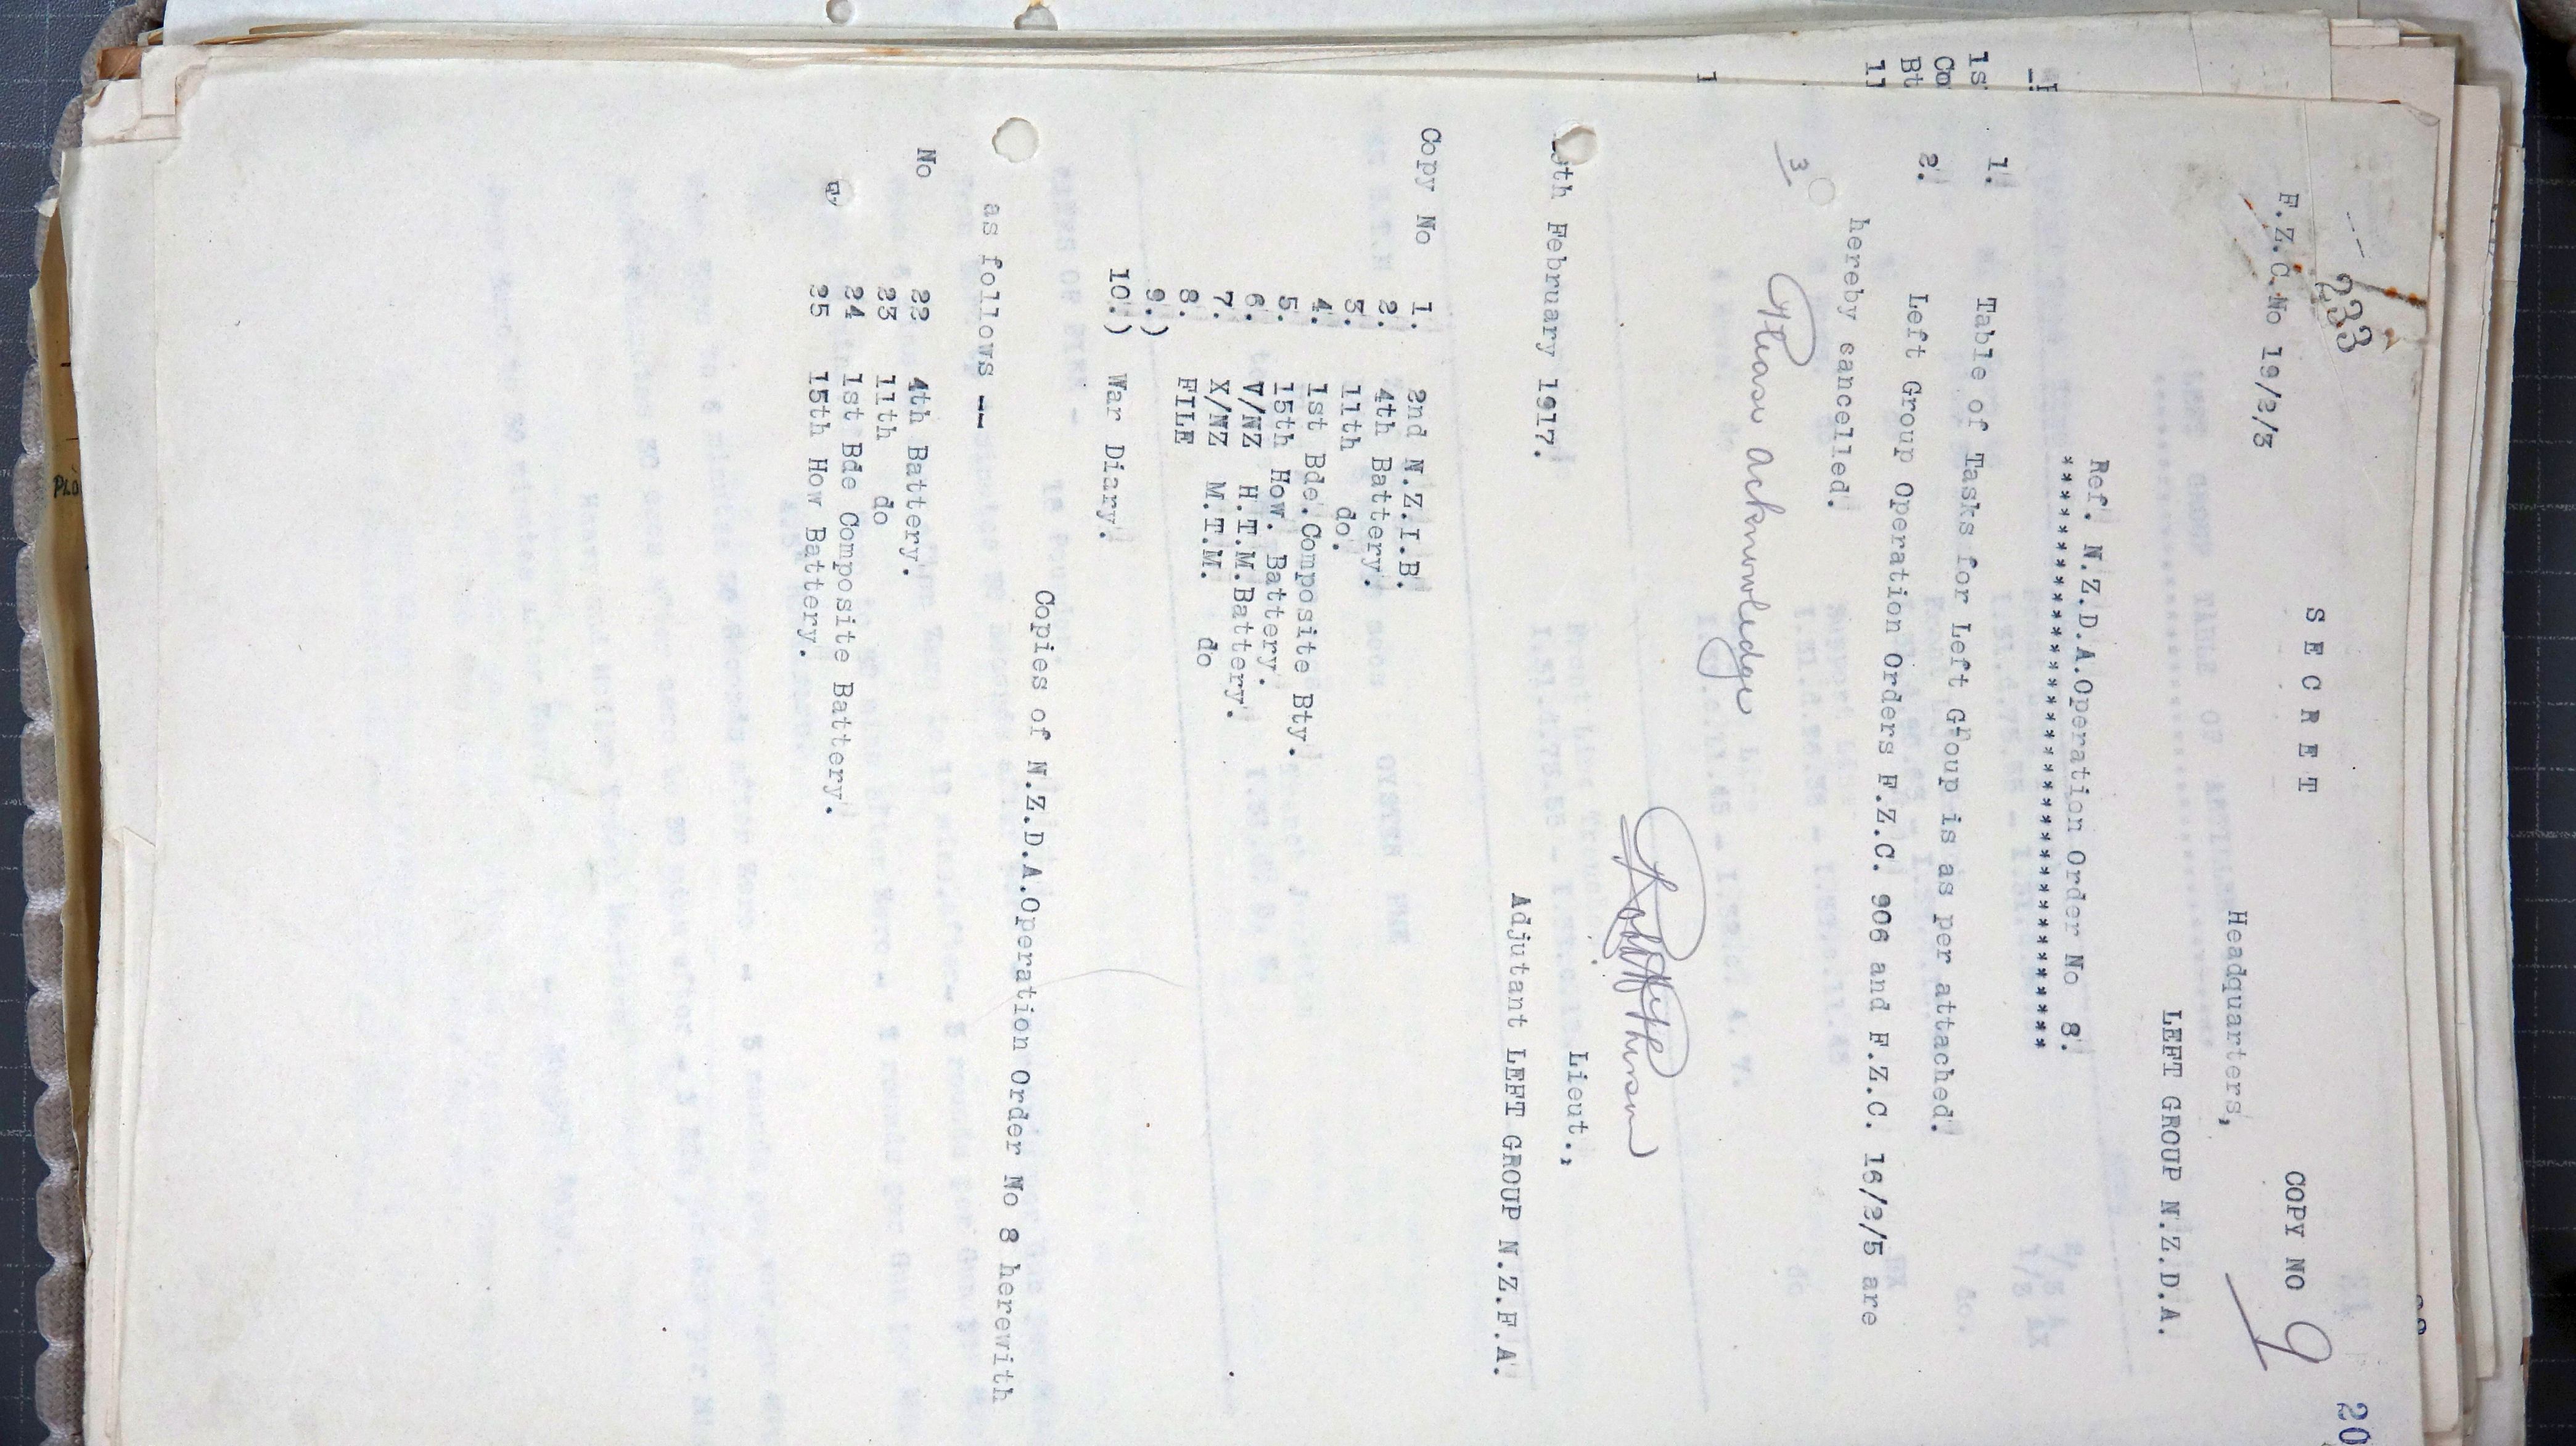 233
S E C R E T
COPY NO 9
F.Z.C.No 19/2/3
Headquarters,
LEFT GROUP N.Z.D.A.
Ref. N.Z.D.A.Operation Order No 8.
1. Table of Tasks for Left Group is as per attached.
2. Left Group Operation Orders F.Z.C. 906 and F.Z.C. 16/2/5 are
hereby cancelled.
3 Please acknowledge
Lieut.,
Adjutant LEFT GROUP N.Z.F.A.
th February 1917.
Copy No 1. 2nd N.Z.I.B.
2. 4th Battery.
3. 11th do.
4. 1st Bde.Composite Bty.
5. 15th How. Battery.
6. V/NZ H.T.M.Battery.
7. X/NZ M.T.M. do
8. FILE
9.)
10.) War Diary.
Copies of N.Z.D.A.Operation Order No 8 herewith
as follows --
No 22 4th Battery.
23 11th do
24 1st Bde Composite Battery.
25 15th How Battery.